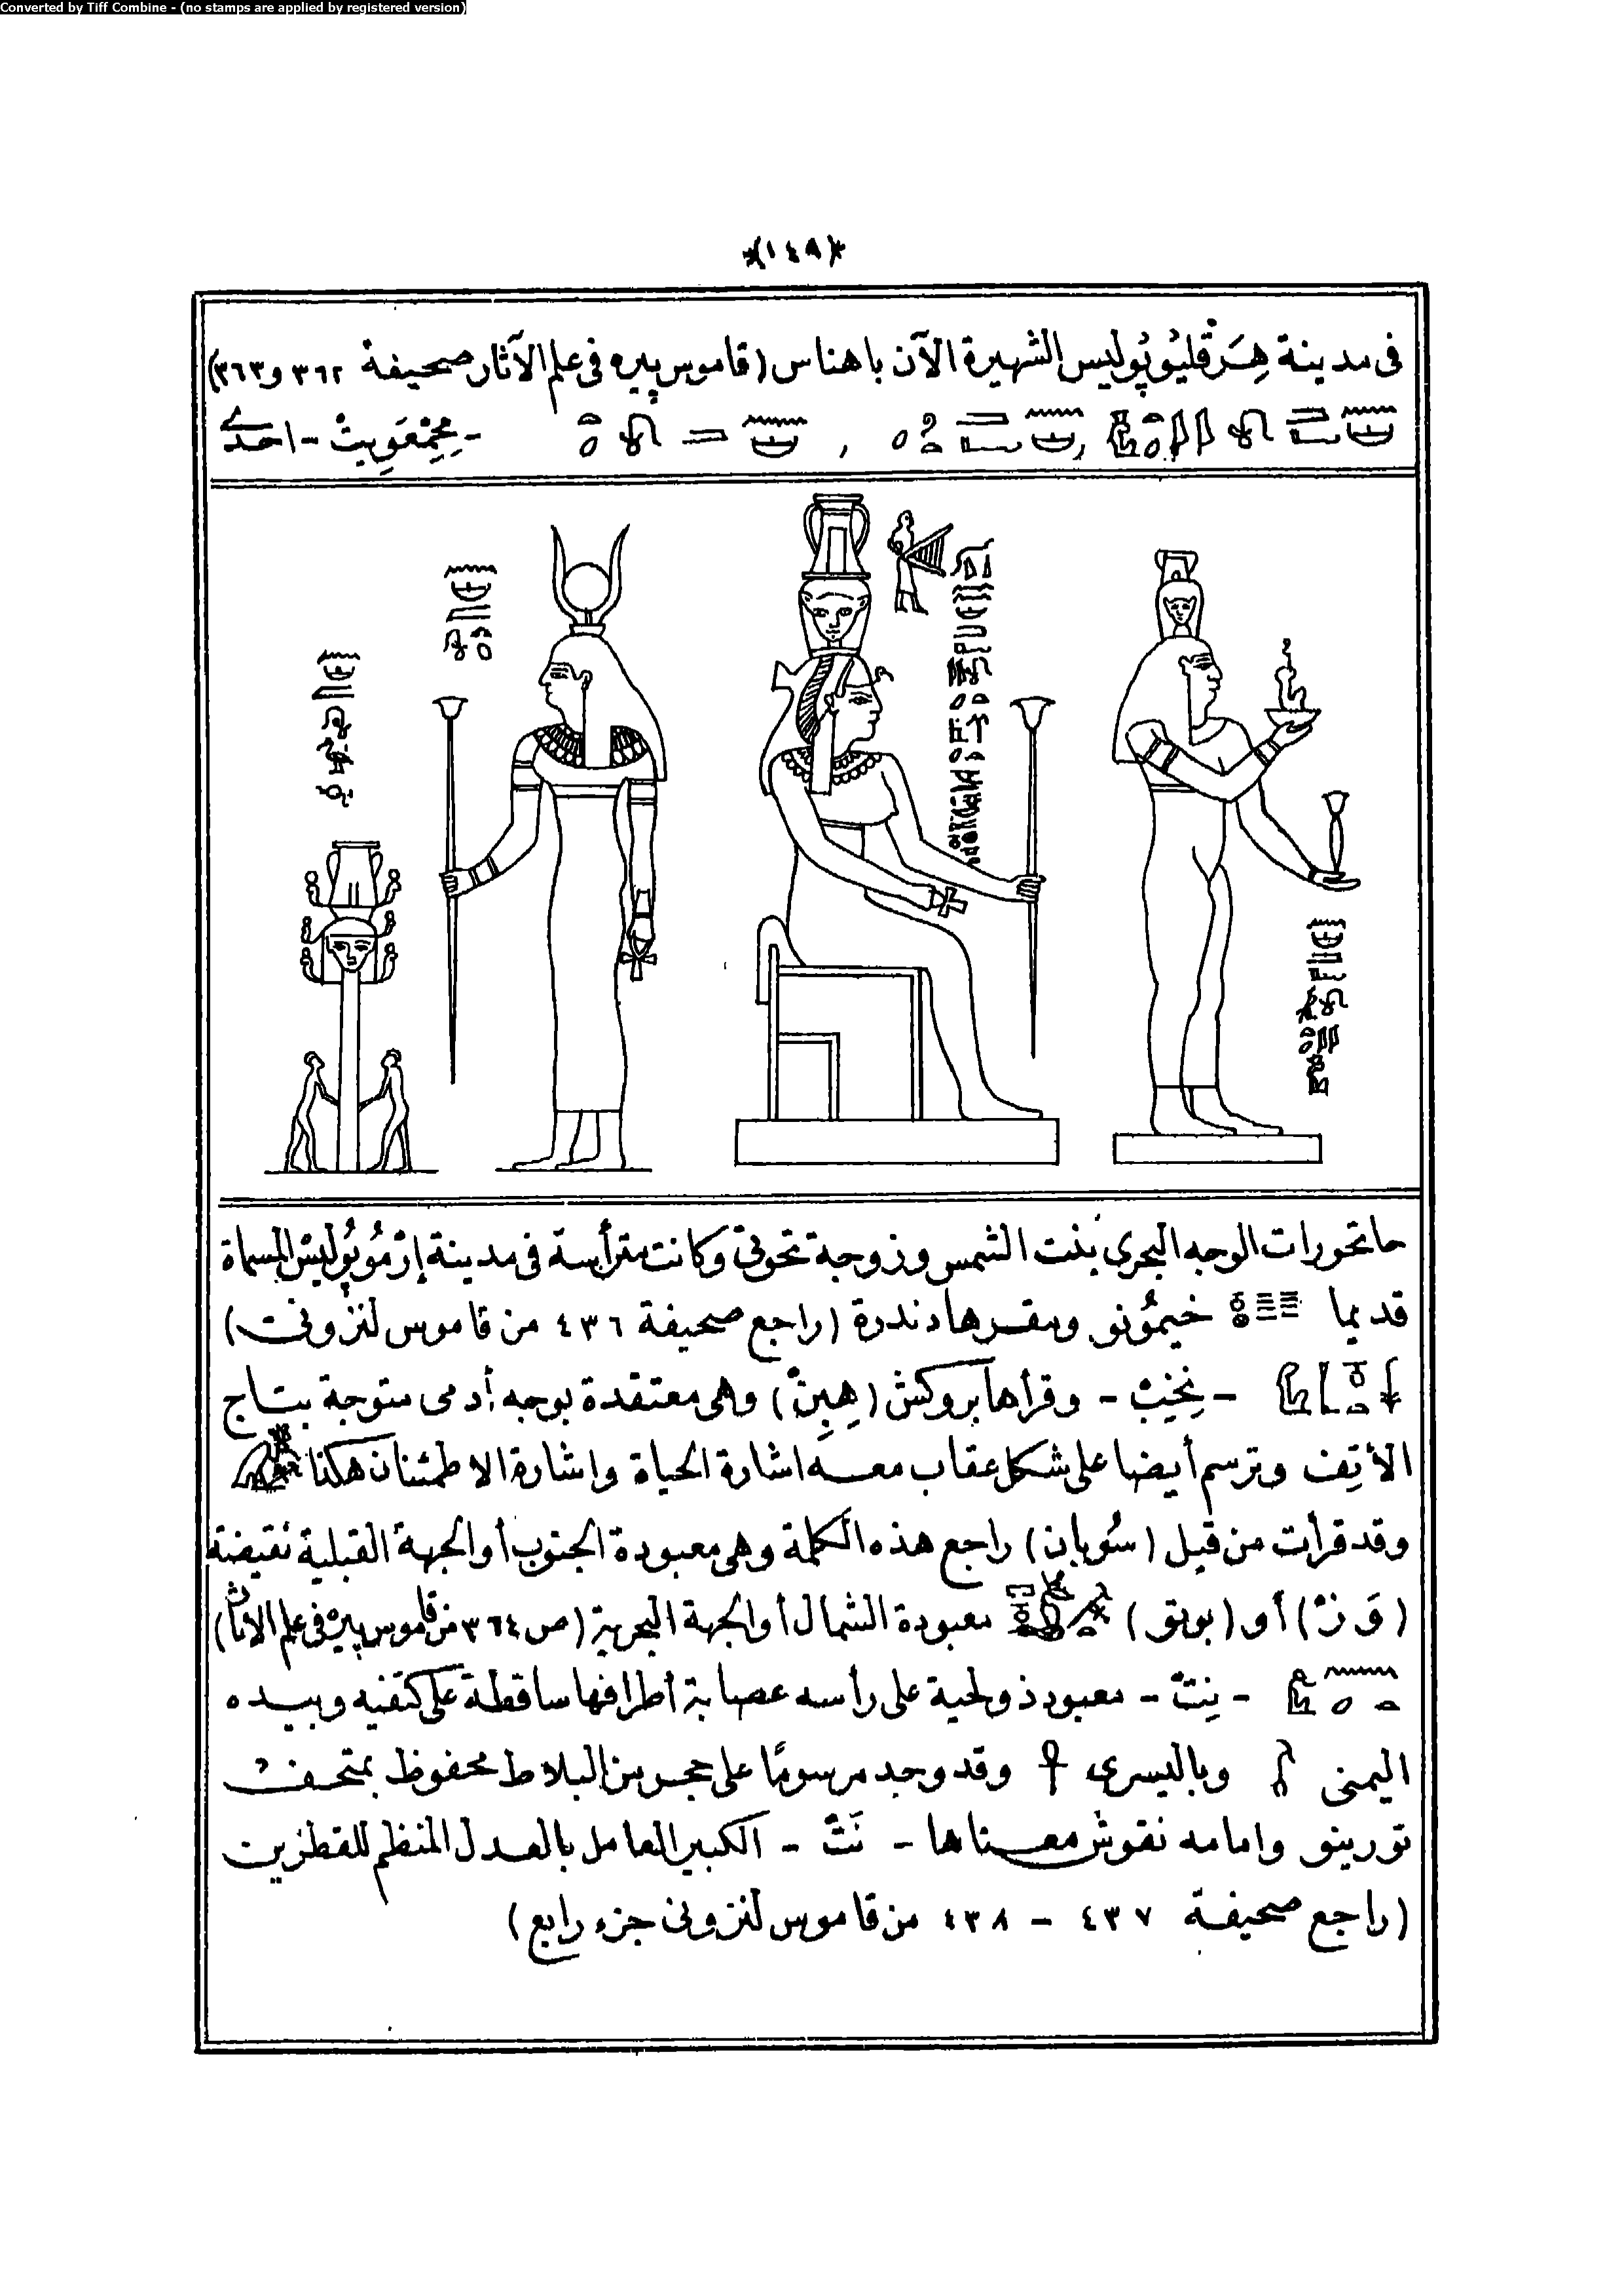 Converted by Tiff Combine - (no stamps are applied by registered version)
(١٤٩)
فى مدينة هِرَقليُوپُوليس الشهيرة الآن باهناس (قاموس پيره فى علم الآثار صحيفة ٣٦٢ و٣٦٣)
احدى
حاتحورات الوجه البحرى بنت الشمس وزوجة تحوتى وكانت مترأسة فى مدينة إرْمُوپُوليسْ المسماة
قديما خيمُونو ومقرها دندرة (راجع صحيفة ٤٣٦ من قاموس لنزونى)
- نِخِبْ - وقرأها بروكش (هِبِنْ) وهى معتقدة بوجه أدمى متوجة بتاج
الأتِف وترسم أيضا على شكل عقاب معه اشارة الحياة واشارة الاطمئنان هكذا
وقد قرأت من قبل (سُوبان) راجع هذه الكلمة وهى معبودة الجنوب أو الجهة القبلية نقيضة
أو (بوتو) معبودة الشمال أو الجهة البحرية (ص ٣٦٤ من قاموس پيره فى علم الآثار)
- نِتْ - معبود ذو لحية على رأسه عصابة أطرافها ساقطة على كتفيه وبيده
اليمنى وباليسرى وقد وجد مرسومًا على حجر من البلاط محفوظ بمتحف
تورينو وامامه نقوش معناها - نَتْ - الكبير العامل بالعدل المنظم للقطرين
(راجع صحيفة ٤٣٧ - ٤٣٨ من قاموس لنزونى جزء رابع)